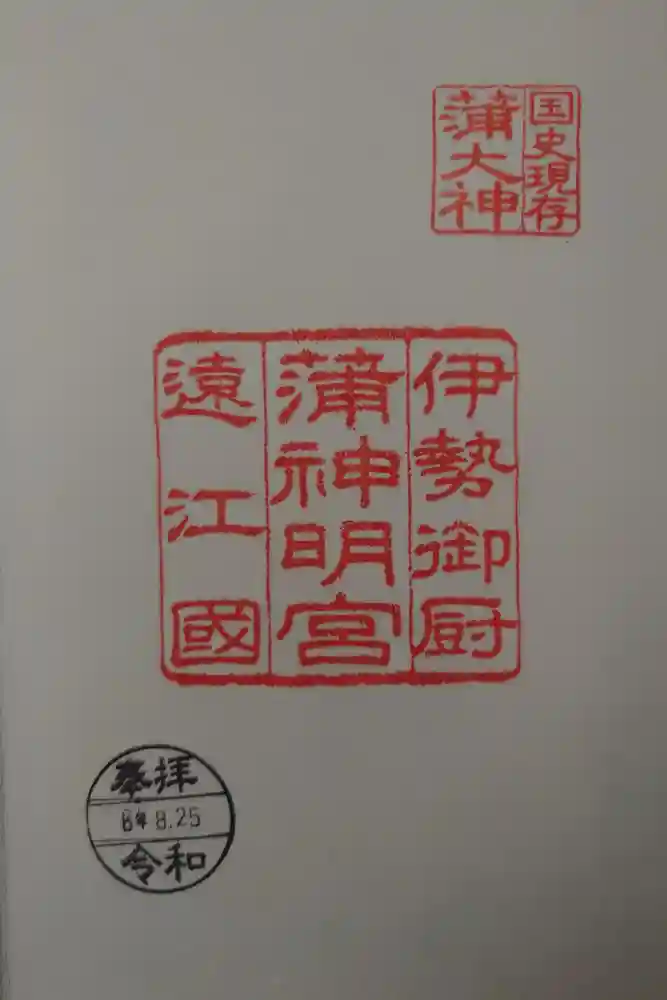 国史現存
蒲大神
伊勢御厨
蒲神明宮
遠江國
奉拝
6年8.25
令和